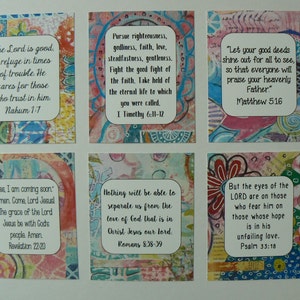 he Lord is good,
refuge in times
of trouble. He
cares for those
who trust in him.
Nahum 1:7
Pursue righteousness,
godliness, faith, love,
steadfastness, gentleness.
Fight the good fight of
the faith. Take hold of
the eternal life to which
you were called.
I Timothy 6:11-12
"Let your good deeds
shine out for all to see,
so that everyone will
praise your heavenly
Father."
Matthew 5:16
I am coming soon."
men. Come, Lord Jesus!
The grace of the Lord
Jesus be with God's
people. Amen.
Revelation 22:20
Nothing will be able to
separate us from the
love of God that is in
Christ Jesus our Lord.
Romans 8:38-39
But the eyes of the
LORD are on those
who fear him on
those whose hope
is in his
unfailing love.
Psalm 33:18